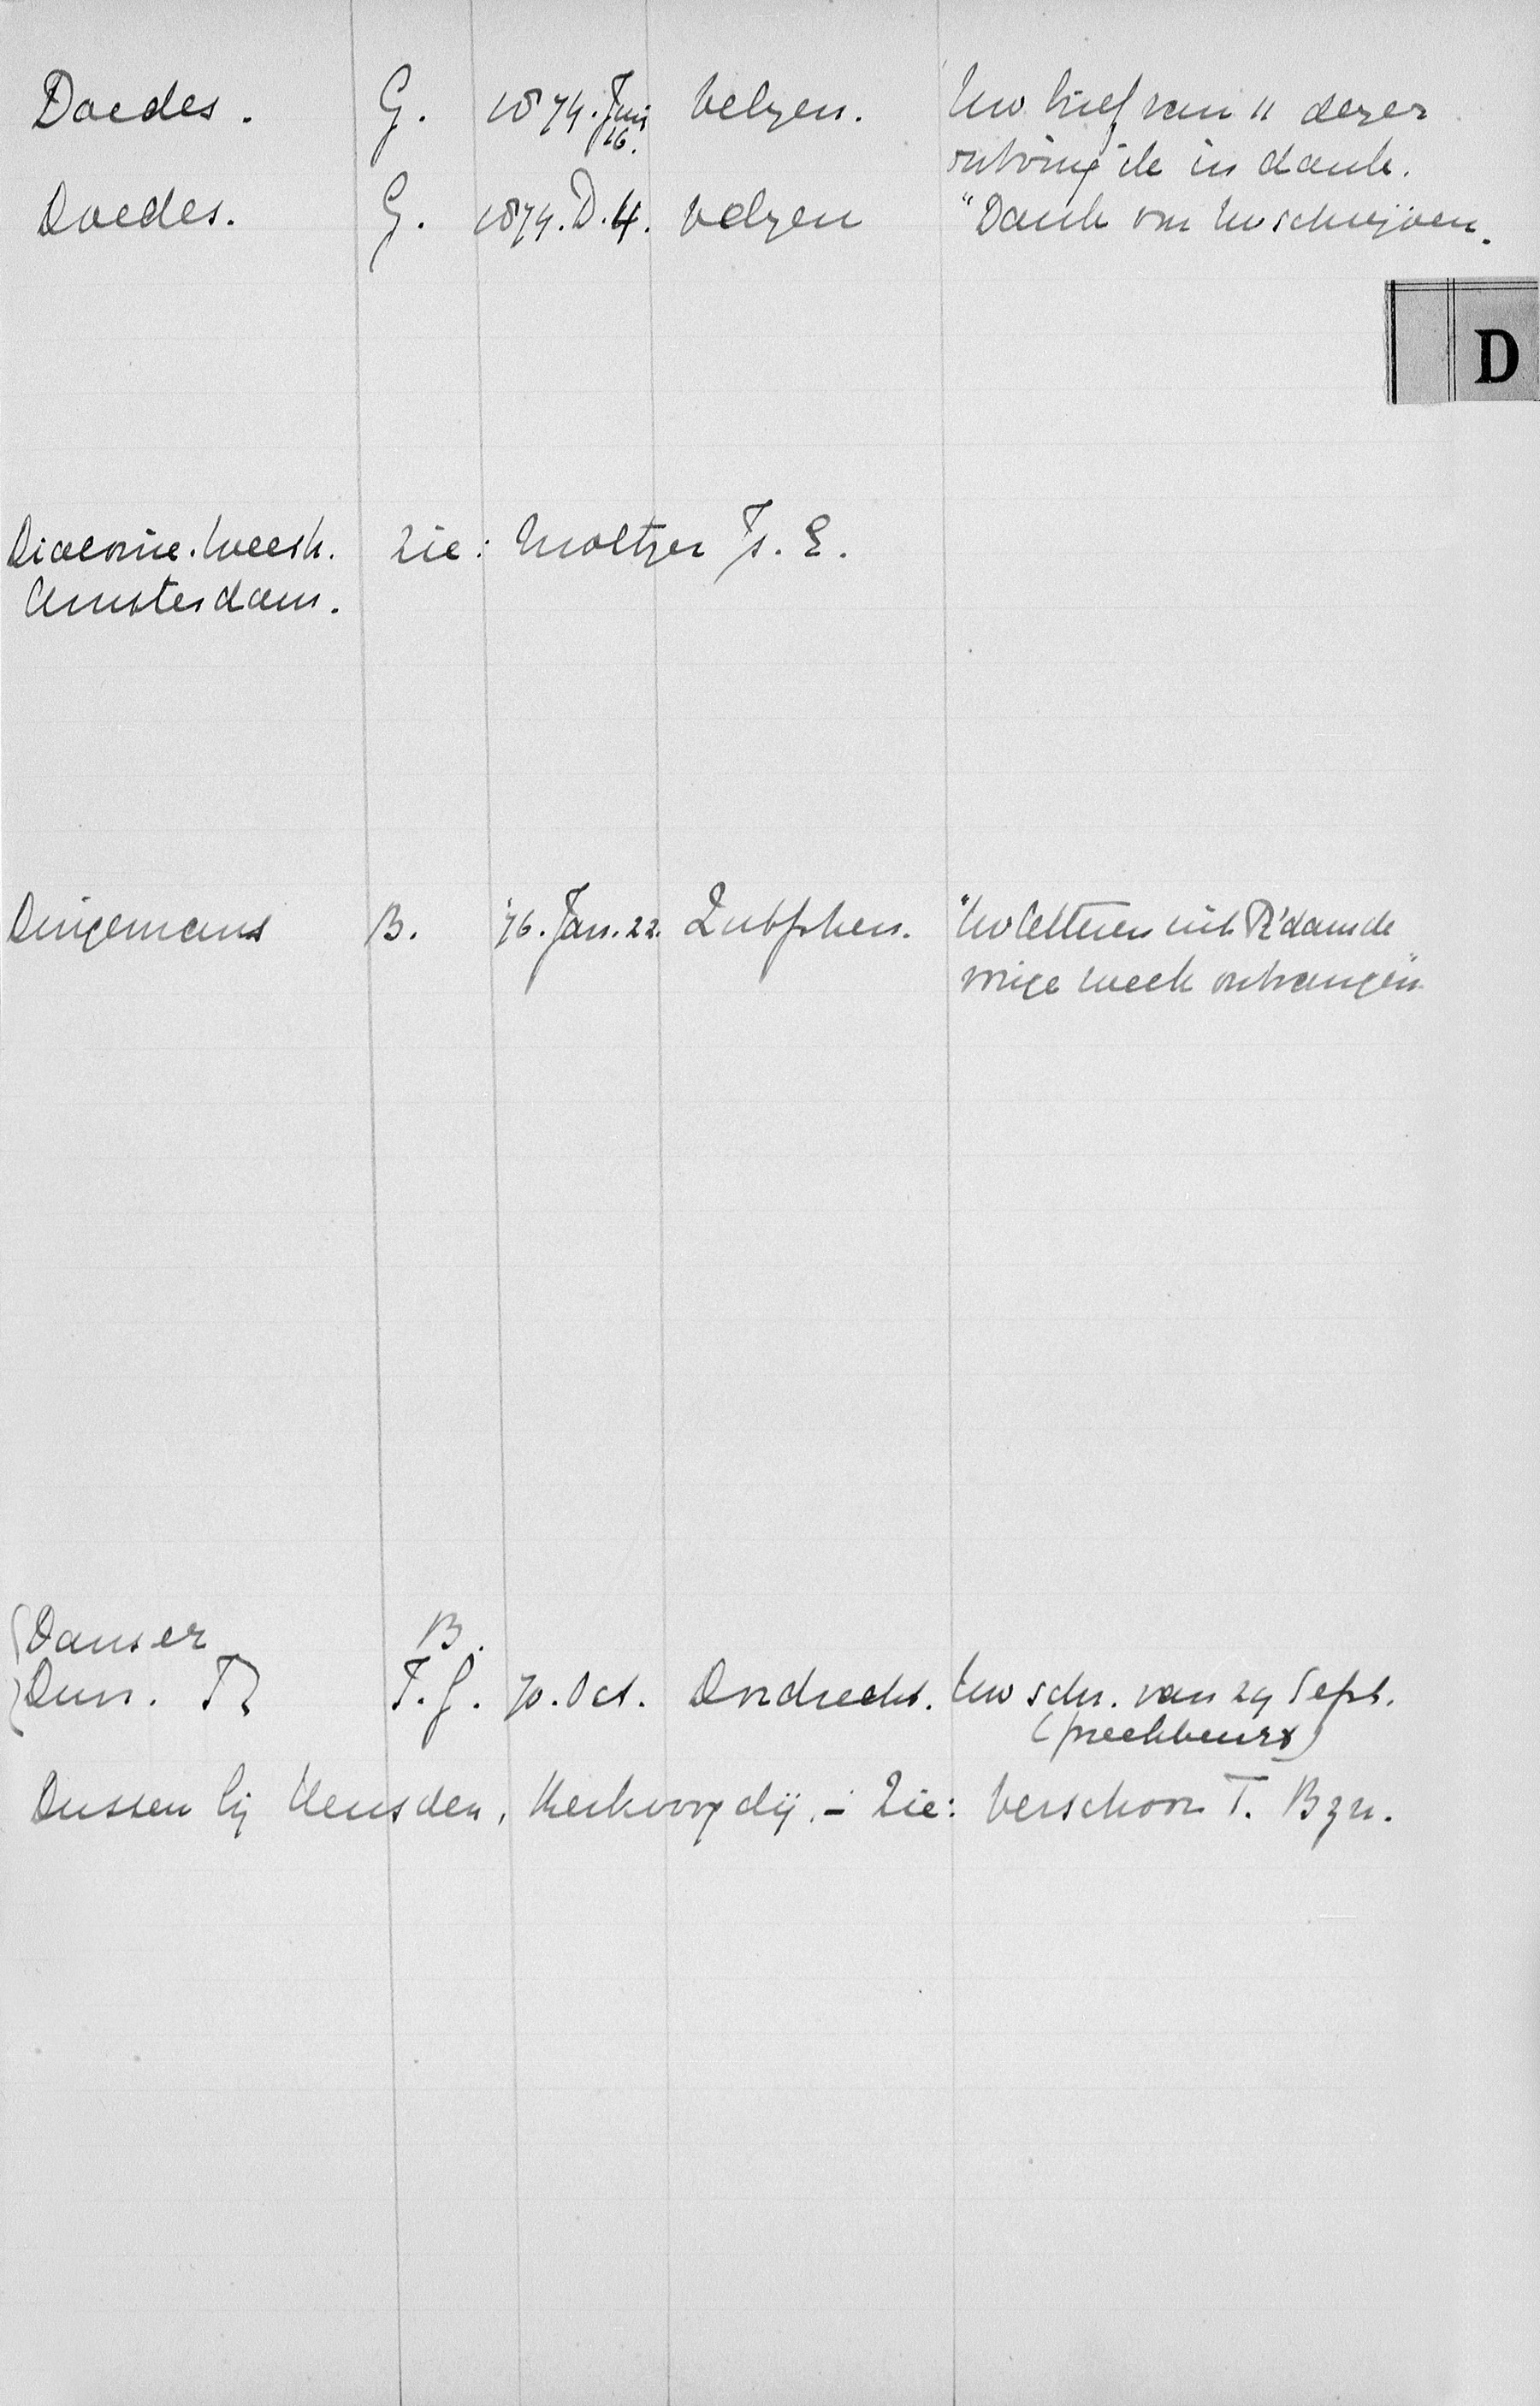 Doedes. G. 1874. Juni 16. Velzen. Uw brief van 11 dezer
ontving ik in dank.
Doedes. G. 1874. D. 4. Velzen "Dank voor Uw schrijven.
D
Diaconie. Weesh. Zie: Moltzer Js. E.
Amsterdam.
Dingemans B. '76. Jan. 22. Zutphen. "Uw letteren uit R'dam de
vorige week ontvangen"
Danser B.
Dun. Th T. G. 70. Oct. Dordrecht. Uw schr. van 29 Sept.
(preekbeurt)
Dussen bij Heusden, Kerkvoogdij. - Zie: Verschoor T. Bzn.